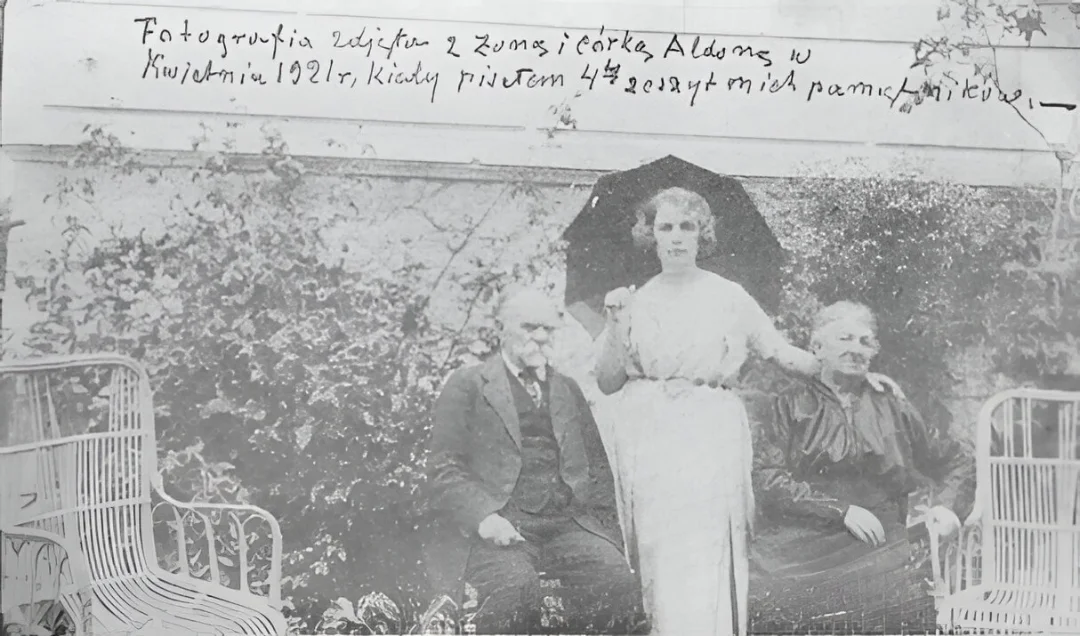 Fotografia zdjęta z żoną i córką Aldoną w
Kwietniu 1921 r, kiedy pisałem 4ty zeszyt mich pamiętników. —